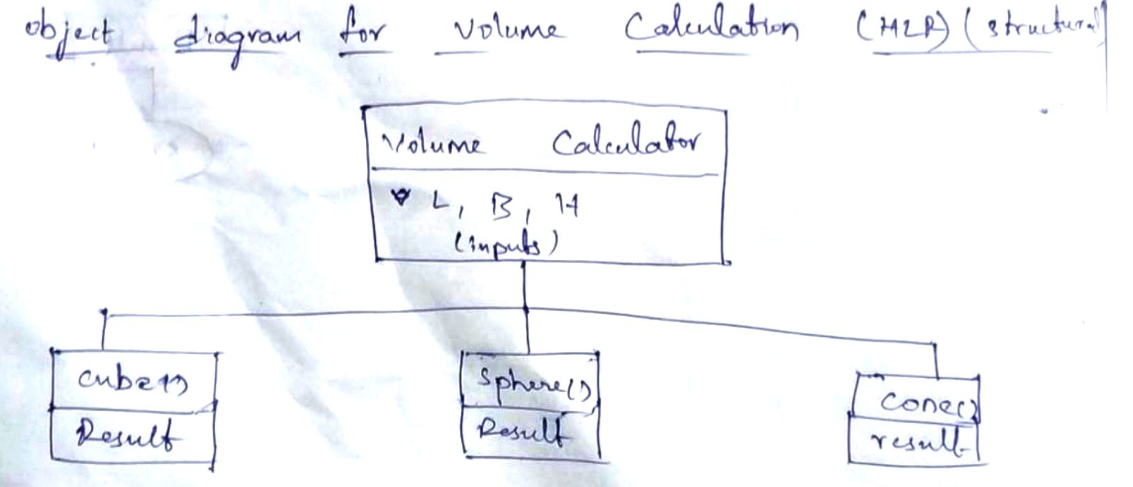 object diagram for Volume Calculation (HLR) (structural)
Volume Calculator
L, B, H
(inputs)
cube()
Result
Sphere()
Result
cone()
result